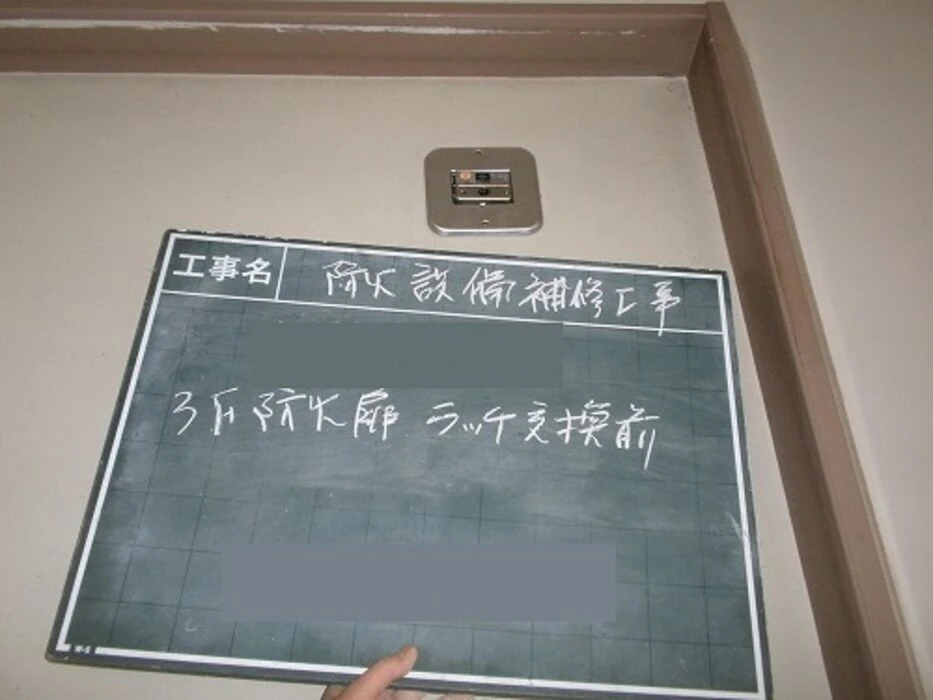 工事名 防火設備補修工事
3F 防火扉 ラッチ交換前